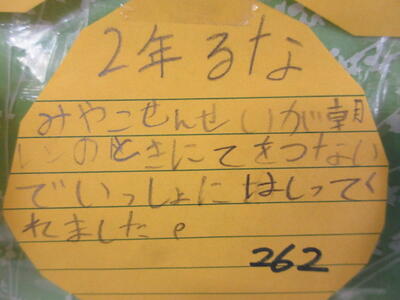 2年るな
みやこせんせいが朝
ンのときにてをつない
でいっしょにはしってく
れました。
262